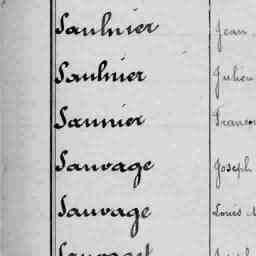 Saulnier Jean
Saulnier Julien
Saunier
Sauvage Joseph
Sauvage Louis